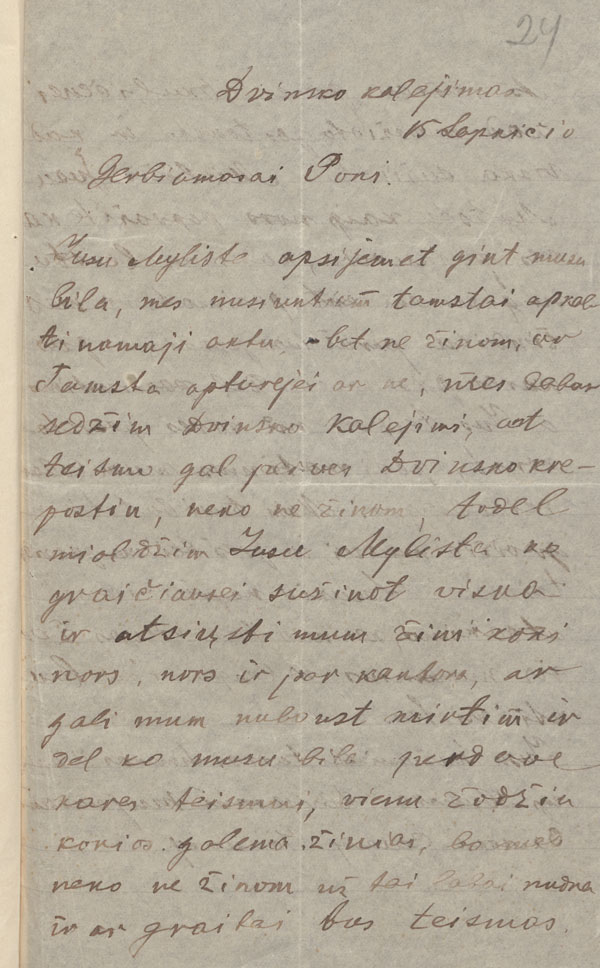 24
Dvinsko kalejimas
15 Lapkričio
Gerbiamasai Poni.
Jusu Mylista apsijemet gint musu
bila, mes nusiuntiam tamstai apkal
tinamaji aktu - bet ne žinom, ar
Tamsta apturejei ar ne, mes dabar
sedžim Dvinsko kalejimi, ant
teismu gal parves Dvinsko kre-
postiu, neko ne žinom, todel
meldžim Jusu Mylista ko
graičiausei sužinot viska
ir atsiųsti mum žini koki
nors, nors ir par kantora, ar
gali mum nubaust mirtim ir
del ko musu bila perdave
kares teismui, vienu žodžiu
kokios galema žinias, bo mes
neko ne žinom už tai labai nudna
ir ar graitai bus teismas.